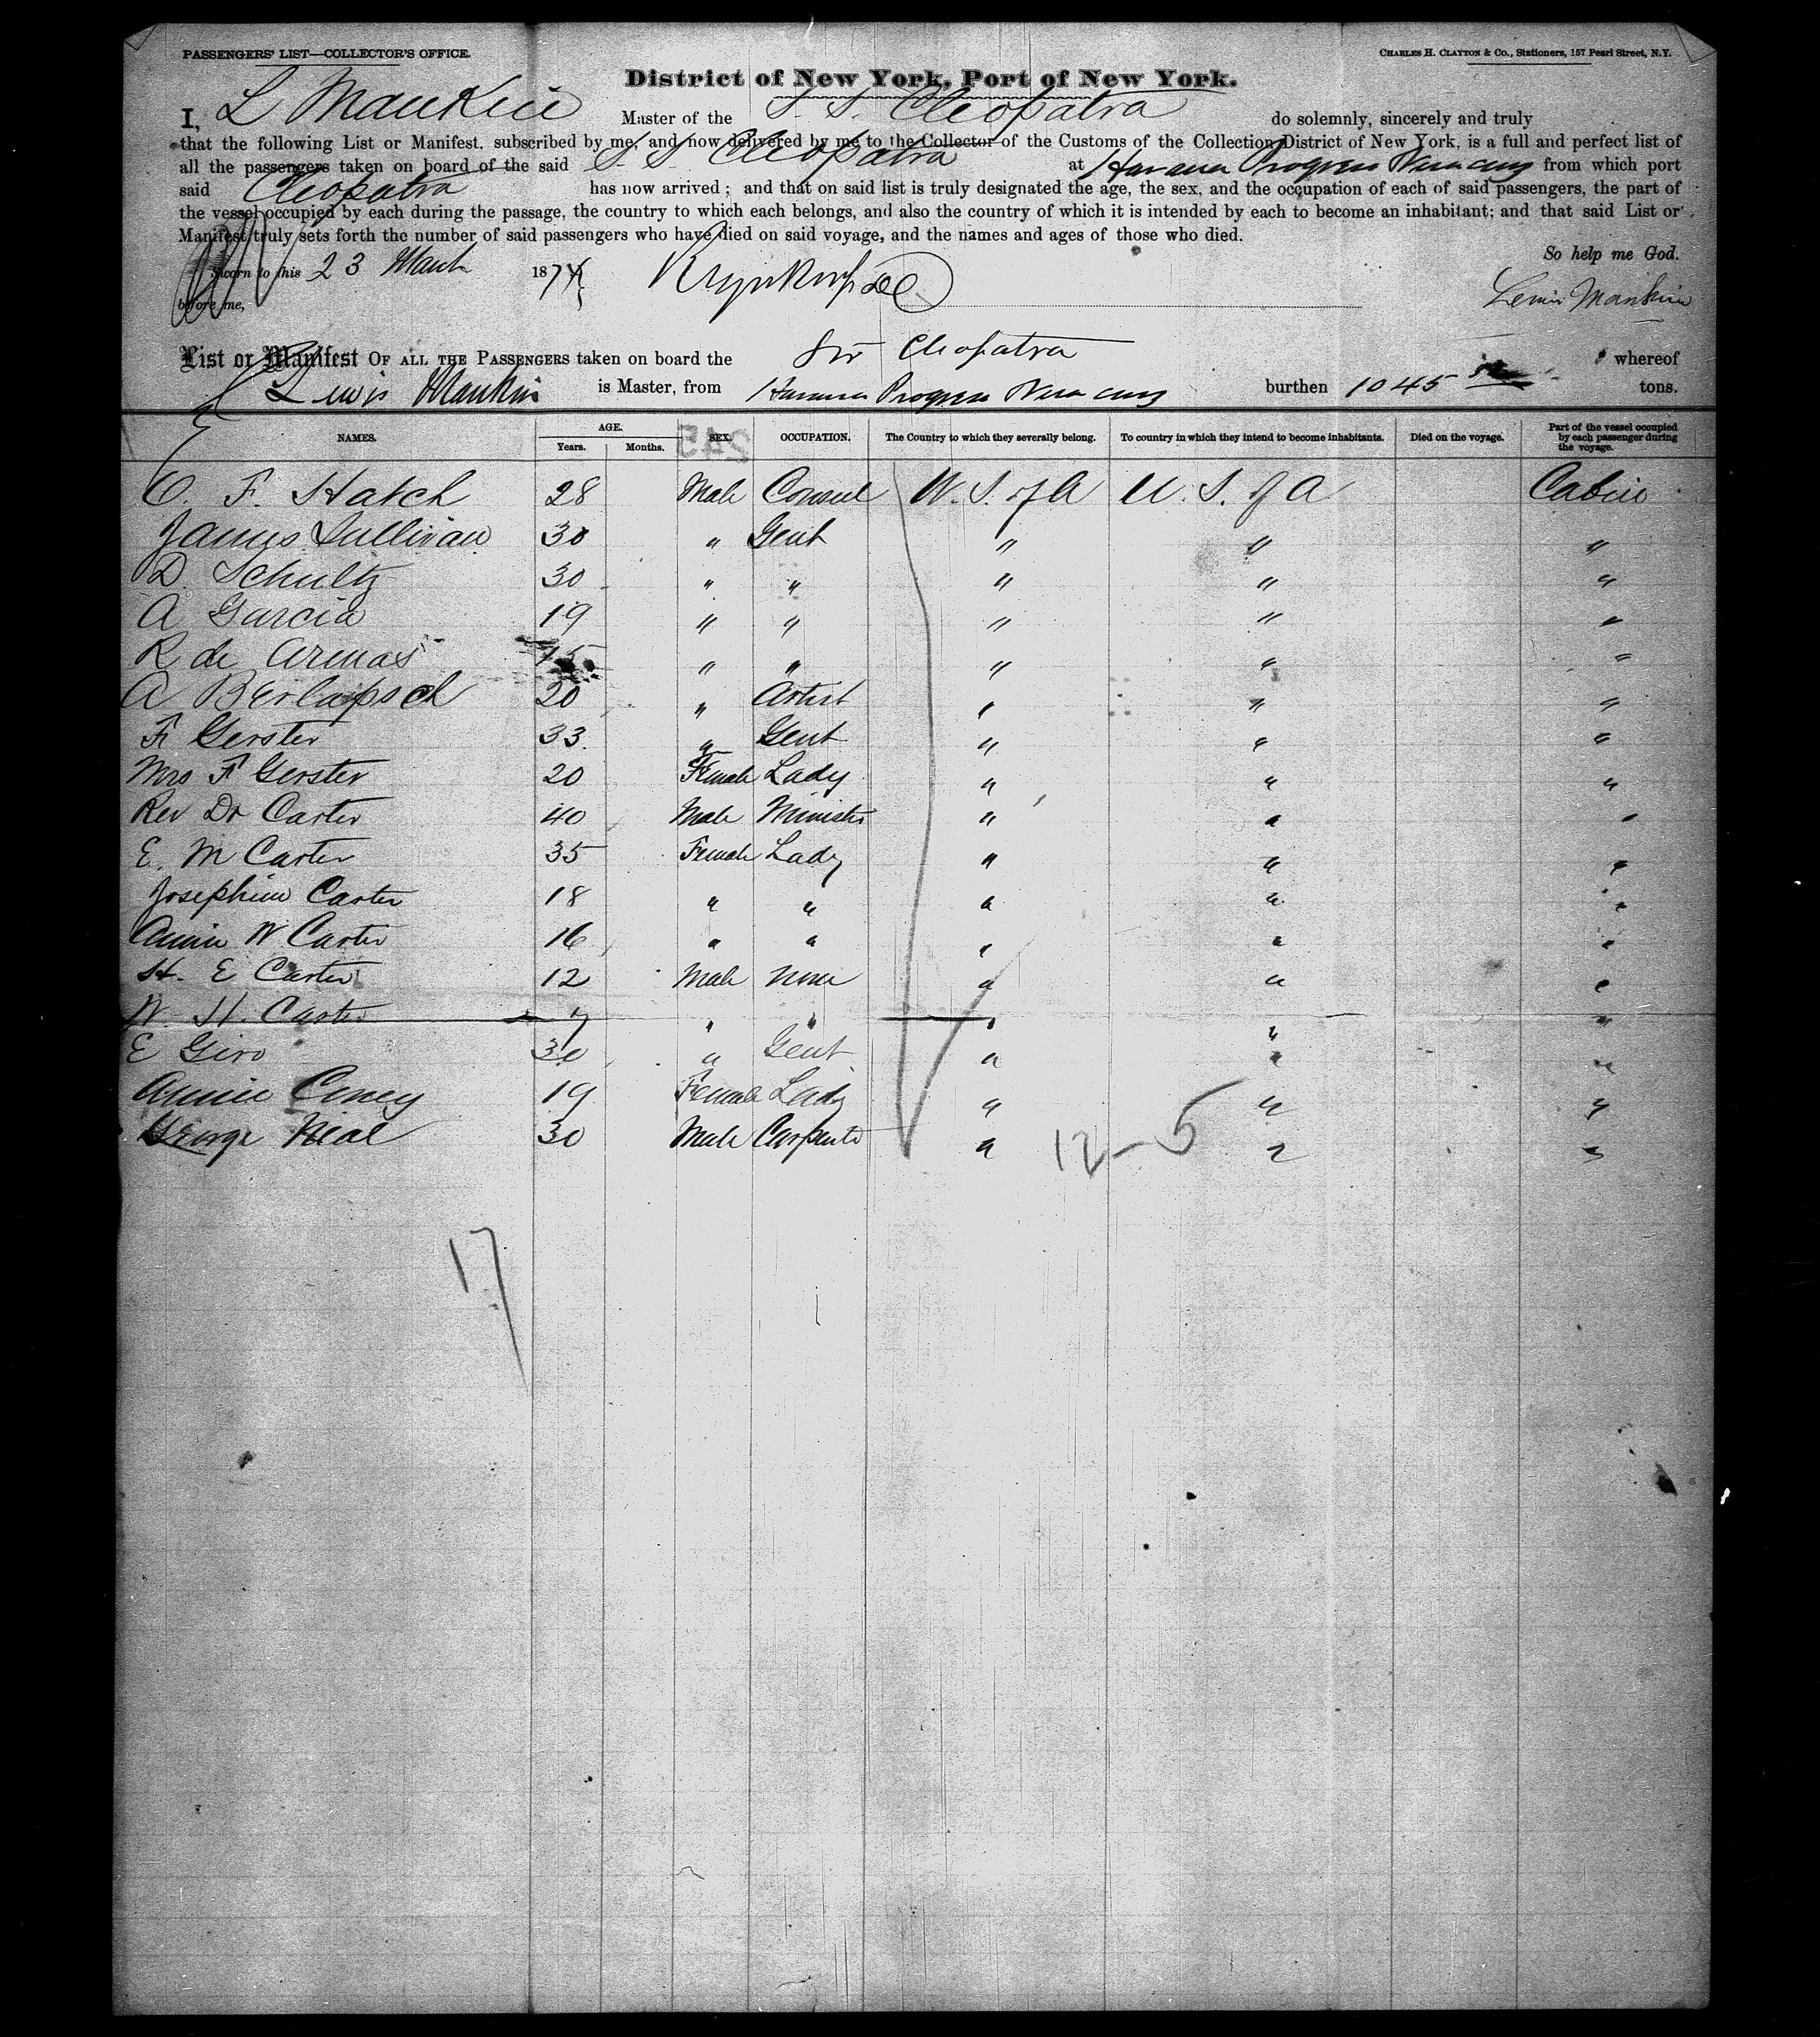 PASSENGERS' LIST—COLLECTOR'S OFFICE.
CHARLES H. CLAYTON & Co., Stationers, 157 Pearl Street, N.Y.
District of New York, Port of New York.
I, L Mankin Master of the S. S. Cleopatra do solemnly, sincerely and truly
that the following List or Manifest, subscribed by me, and now delivered by me to the Collector of the Customs of the Collection District of New York, is a full and perfect list of
all the passengers taken on board of the said S. S. Cleopatra at Havana Progreso Vera cruz from which port
said Cleopatra has now arrived; and that on said list is truly designated the age, the sex, and the occupation of each of said passengers, the part of
the vessel occupied by each during the passage, the country to which each belongs, and also the country of which it is intended by each to become an inhabitant; and that said List or
Manifest truly sets forth the number of said passengers who have died on said voyage, and the names and ages of those who died.
So help me God.
Sworn to this 23 March 1874
before me,
Lewis Mankin
List or Manifest OF ALL THE PASSENGERS taken on board the Str Cleopatra whereof
Lewis Mankin is Master, from Havana Progreso Vera cruz burthen 1045 tons.
NAMES. AGE. Years. Months. SEX. OCCUPATION. The Country to which they severally belong. To country in which they intend to become inhabitants. Died on the voyage. Part of the vessel occupied by each passenger during the voyage.
245
C. F. Hatch 28 Male Consul U. S. of A U. S. of A Cabin
James Sullivan 30 " Gent " " "
D. Schultz 30 " " " " "
A Garcia 19 " " " " "
R de Armas 15 " " " " "
A Berlapsch 20 " Artist " " "
F Gerster 33 " Gent " " "
Mrs F Gerster 20 Female Lady " " "
Rev Dr Carter 40 Male Minister " " "
E. M Carter 35 Female Lady " " "
Josephine Carter 18 " " " " "
Annie W Carter 16 " " " " "
H. E Carter 12 Male None " " "
W. H. Carter 7 " " " " "
E Giro 30 " Gent " " "
Annie Coney 19 Female Lady " " "
George Neal 30 Male Carpenter " " "
12-5
17